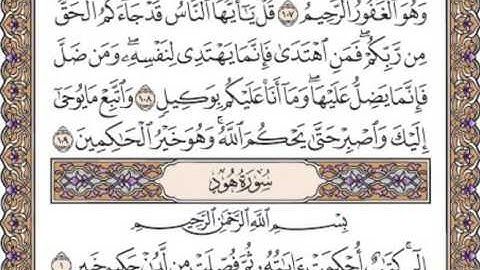 وَهُوَ ٱلْغَفُورُ ٱلرَّحِيمُ ١٠٧ قُلْ يَٰٓأَيُّهَا ٱلنَّاسُ قَدْ جَآءَكُمُ ٱلْحَقُّ
مِن رَّبِّكُمْ ۖ فَمَنِ ٱهْتَدَىٰ فَإِنَّمَا يَهْتَدِى لِنَفْسِهِۦ ۖ وَمَن ضَلَّ
فَإِنَّمَا يَضِلُّ عَلَيْهَا ۖ وَمَآ أَنَا۠ عَلَيْكُم بِوَكِيلٍ ١٠٨ وَٱتَّبِعْ مَا يُوحَىٰٓ
إِلَيْكَ وَٱصْبِرْ حَتَّىٰ يَحْكُمَ ٱللَّهُ ۚ وَهُوَ خَيْرُ ٱلْحَٰكِمِينَ ١٠٩
سُورَةُ هُودٍ
بِسْمِ ٱللَّهِ ٱلرَّحْمَٰنِ ٱلرَّحِيمِ
الٓر ۚ كِتَٰبٌ أُحْكِمَتْ ءَايَٰتُهُۥ ثُمَّ فُصِّلَتْ مِن لَّدُنْ حَكِيمٍ خَبِيرٍ ١